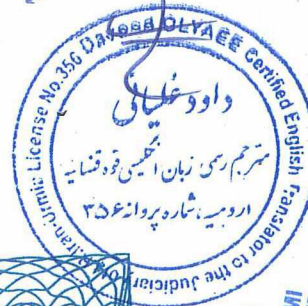 License No.356 Davood OLYAEE Certified English Translator to the Judiciary
Iran-Urmia
داود علیائی
مترجم رسمی زبان انگلیسی قوه قضائیه
ارومیه، شماره پروانه ۳۵۶